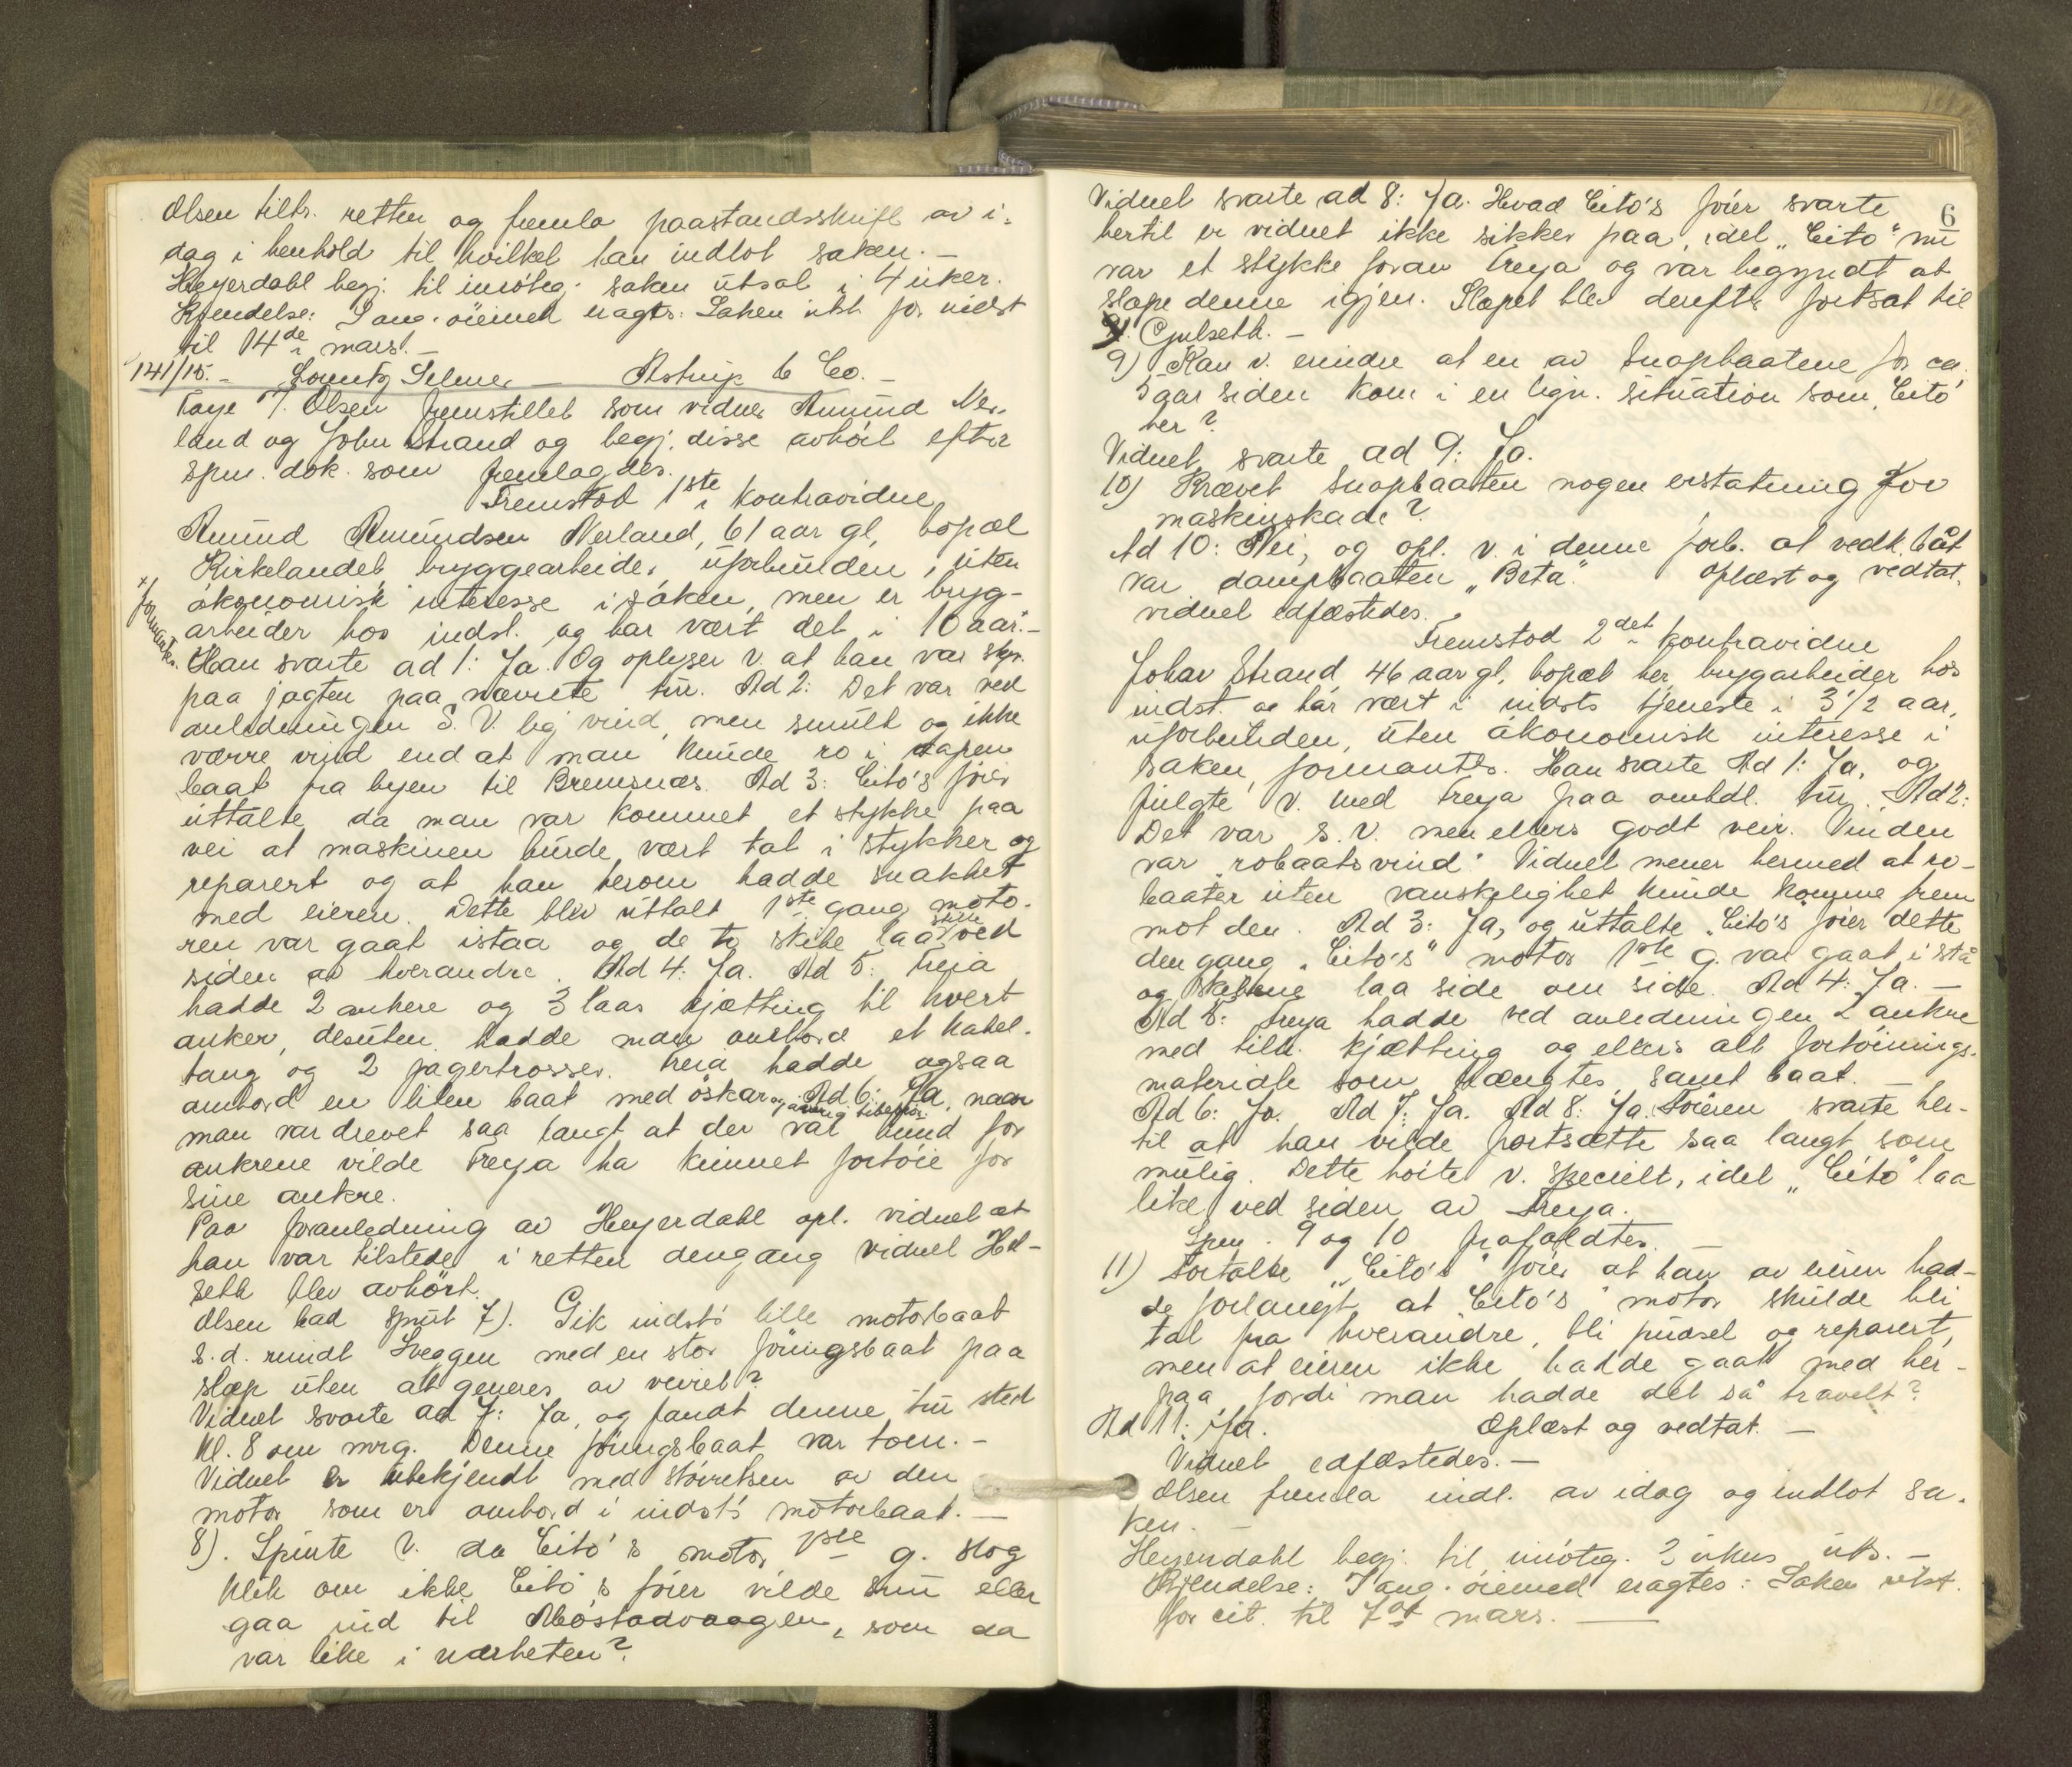 Olsen tiltr. retten og fremla paastandsskrift av i-
dag i henhold til hvilket han indlot saken. —
Heyerdahl begj. til imøteg. saken utsat i 4 uker.
Kjendelse: I ang. øiemed eragts: Saken utst. for
til 14de mars. —
141/15. - Lorentz Selmer — Astrup & Co. —
Faye J. Olsen fremstillet som vidner Amund Ner-
land og Johan Strand og begj. disse avhört efter
spm. dok. som fremlagdes.
Fremstod 1ste kontravidne
Amund Amundsen Nerland, 61 aar gl, bopæl
Kirkelandet, bryggearbeider, uforbunden, uten
økonomisk interesse i saken, men er bryg-
arbeider hos indst. og har vært det i 10 aar. -
+ formantes.
Han svarte ad 1: Ja. Og oplyser v. at han var skpr.
paa jagten paa nævnte tur. Ad 2: Det var ved
anledningen S.V. lig vind, men smult og ikke
værre vind end at man kunde ro i aapen
baat fra byen til Bremsnæs. Ad 3: Cito's fører
uttalte da man var kommet et stykke paa
vei at maskinen burde vært tat i stykker og
reparert og at han herom hadde snakket
med eieren. Dette blev uttalt 1ste gang moto-
ren var gaat istaa og de to skibe laa ved
siden av hverandre. Ad 4: Ja. Ad 5: Freia
hadde 2 ankere og 3 laas kjætting til hvert
anker, desuten hadde man ombord et kabel-
taug og 2 jagertrosser. Freia hadde ogsaa
ombord en liten baat med öskar og Ad 6: Ja, naar
man var drevet saa langt at der var bund for
ankrene vilde Freya ha kunnet fortøie for
sine ankre.
Paa foranledning av Heyerdahl opl. vidnet at
han var tilstede i retten dengang vidnet Hol-
seth blev avhört.
Olsen bad spurt 7). Gik indst's lille motorbaat
s.d. rundt Sveggen med en stor föringsbaat paa
slæp uten at generes av veiret?
Vidnet svarte ad 7: Ja, og fandt denne tur sted
kl. 8 om mrg. Denne föringsbaat var tom. -
Vidnet er ubekjendt med störrelsen av den
motor som er ombord i indst's motorbaat. —
8). Spurte v. da Cito's motor 1ste g. slog
klik om ikke Cito's förer vilde snu eller
gaa ind til Mostadvaagen, som da
var like i nærheten?
6
Vidnet svarte ad 8: Ja. Hvad Cito's förer svarte
hertil er vidnet ikke sikker paa, idet „Cito" nu
var et stykke foran Freya og var begyndt at
slæpe denne igjen. Slæpet blev derefter fortsat til
Gjulseth. -
9) Kan v. erindre at en av Snapbaatene for ca.
5 aar siden kom i en lign. situation som „Cito"
her?
Vidnet svarte ad 9: Ja.
10) Krævet Snapbaaten nogen erstatning for
maskinskade?
Ad 10: Nei, og opl. v. i denne forb. at vedk. båt
var dampbaaten „Beta". Oplæst og vedtat.
vidnet edfæstedes.
Fremstod 2det kontravidne
Johan Strand 46 aar gl, bopæl her, brygarbeider hos
indst. og har vært i indsts tjeneste i 3 1/2 aar,
uforbunden, uten økonomisk interesse i
saken, formants. Han svarte Ad 1: Ja, og
fulgte v. med Freya paa omhdl. tur. Ad 2:
Det var S.V. men ellers godt veir. Vinden
var „robaatsvind". Vidnet mener hermed at ro-
baater uten vanskelighet kunde komme frem
mot den. Ad 3: Ja, og uttalte „Cito's" fører dette
den gang „Cito's" motor 1ste g. var gaat i stå
og skibene laa side om side. Ad 4: Ja. —
Ad 5: Freya hadde ved anledningen 2 ankre
med tilh. kjætting og ellers alt fortöinings-
materiale som trængtes, samt baat. —
Ad 6: Ja. Ad 7: Ja. Ad 8: Ja. Føreren svarte her-
til at han vilde fortsætte saa langt som
mulig. Dette hörte v. specielt, idet „Cito" laa
like ved siden av Freya.
Spm. 9 og 10 frafaldtes. —
11) Fortalte „Cito's" förer at han av eieren had-
de forlangt at „Cito's" motor skulde bli
tat fra hverandre, bli pudset og reparert,
men at eieren ikke hadde gaat med her-
paa fordi man hadde det så travelt?
Ad 11: Ja. Oplæst og vedtat. —
Vidnet edfæstedes. —
Olsen fremla indl. av idag og indlot sa-
ken. —
Heyerdahl begj. til imøteg. 2 ukers uts. —
Kjendelse: I ang. øiemed eragtes: Saken utst.
for cit. til 7de mars. —